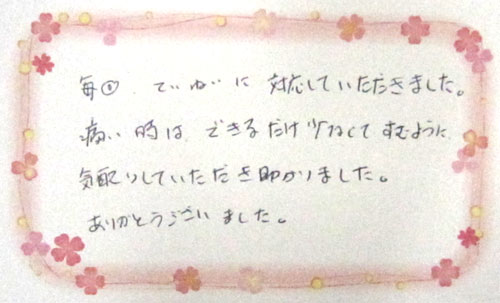 毎回、ていねいに対応していただきました。
痛い時は、できるだけ少なくてすむように、
気配りしていただき助かりました。
ありがとうございました。